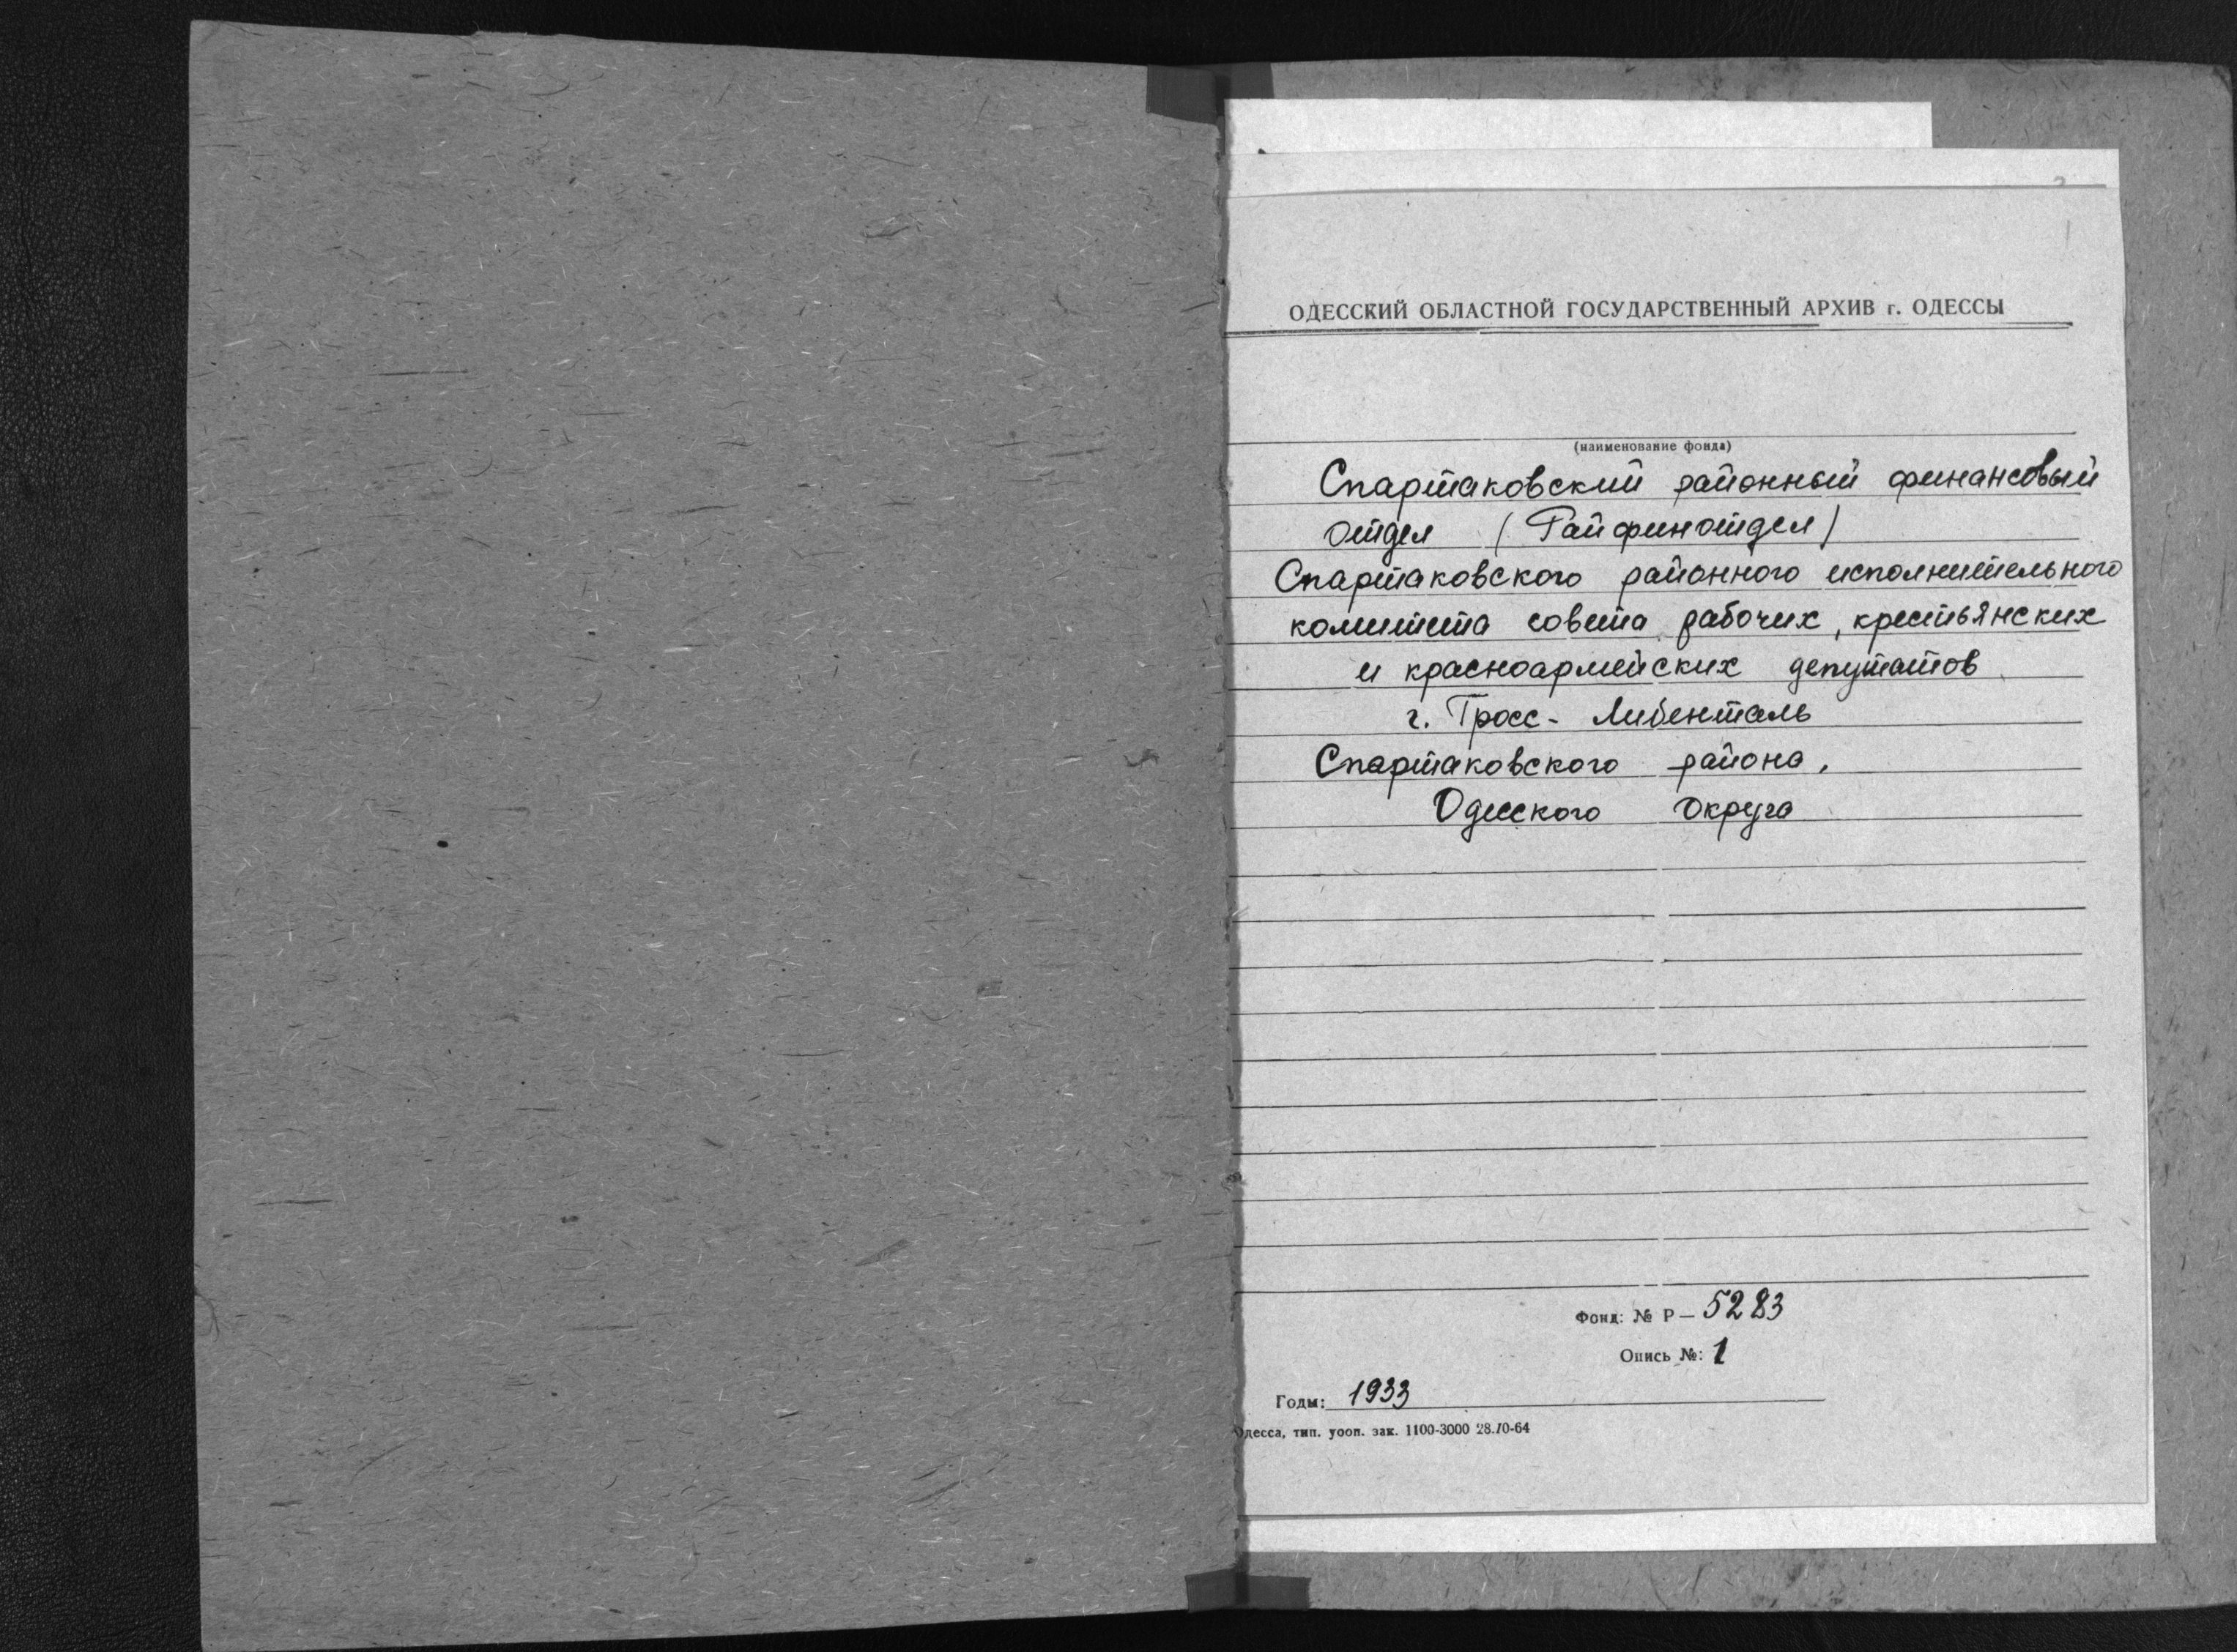 ОДЕССКИЙ ОБЛАСТНОЙ ГОСУДАРСТВЕННЫЙ АРХИВ г. ОДЕССЫ
(наименование фонда)
Спартаковский районный финансовый
отдел (Райфинотдел)
Спартаковского районного исполнительного
комитета совета рабочих, крестьянских
и красноармейских депутатов
г. Гросс-Либенталь
Спартаковского района,
Одесского округа
Фонд: № Р— 5283
Опись №: 1
Годы: 1933
Одесса, тип. уооп. зак. 1100-3000 28.10-64